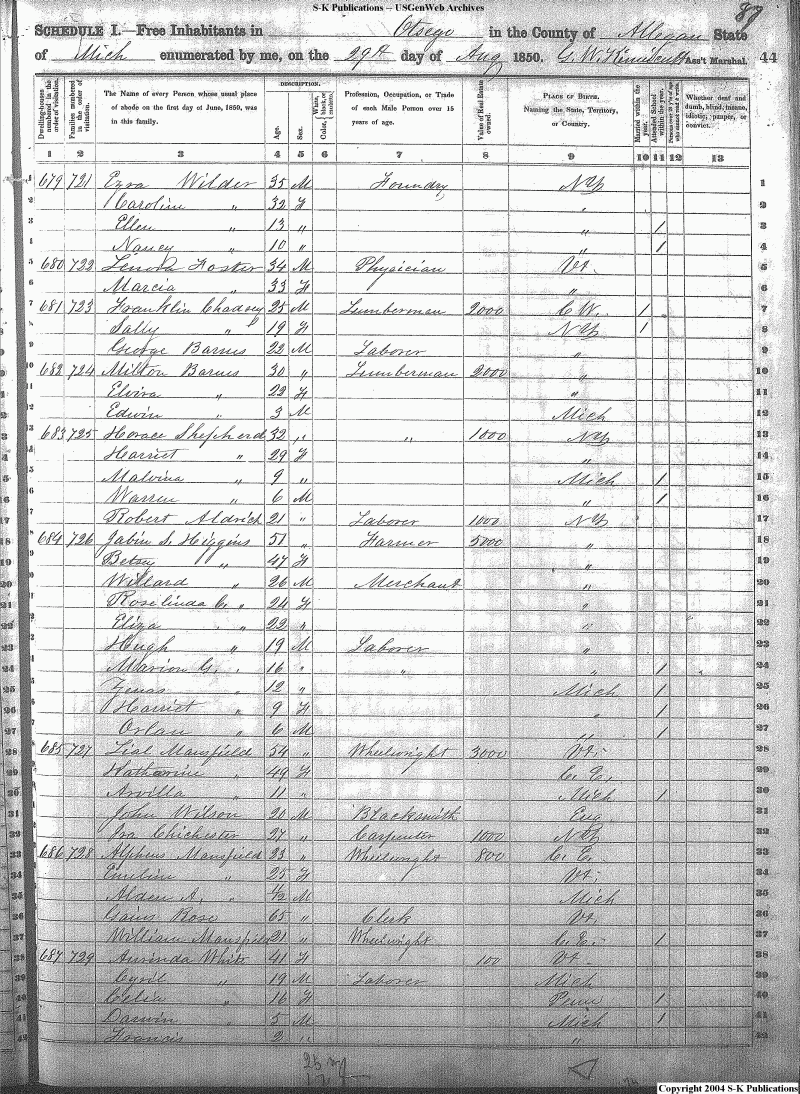 S-K Publications – USGenWeb Archives
89
SCHEDULE I.—Free Inhabitants in Otsego in the County of Allegan State
of Mich enumerated by me, on the 29th day of Aug 1850. G. W. Ass't Marshal. 44
Dwelling-houses numbered in the order of visitation. Families numbered in the order of visitation. The Name of every Person whose usual place of abode on the first day of June, 1850, was in this family. DESCRIPTION. Age. Sex. Color, White, black, or mulatto. Profession, Occupation, or Trade of each Male Person over 15 years of age. Value of Real Estate owned. PLACE OF BIRTH. Naming the State, Territory, or Country. Married within the year. Attended School within the year. Whether deaf and dumb, blind, insane, idiotic, pauper, or convict.
1 2 3 4 5 6 7 8 9 10 11 12 13
1 679 721 Ezra Wilder 35 M Foundry NY 1
2 Carolin " 32 F " 2
3 Ellen " 13 " " 1 3
4 Nancy " 10 " " 1 4
5 680 722 Lenora Foster 34 M Physician Vt. 5
6 Marcia " 33 F " 6
7 681 723 Franklin Chadsey 25 M Lumberman 2000 C W. 1 7
8 Sally " 19 F NY 1 8
9 George Barns 22 M Laborer " 9
10 682 724 Milton Barns 30 " Lumberman 2000 " 10
11 Elvira " 22 F " 11
12 Edwin " 3 M Mich 12
13 683 725 Horace Shepherd 32 " " 1000 NY 13
14 Harriet " 29 F " 14
15 Malvina " 9 " Mich 1 15
16 Warren " 6 M " 1 16
17 Robert Aldrich 21 " Laborer 1000 NY 17
18 684 726 Jabin S. Higgins 51 " Farmer 5000 " 18
19 Betsy " 47 F " 19
20 Willard " 26 M Merchant " 20
21 Roselinda C. " 24 F " 21
22 Eliza " 22 " " 22
23 Hugh " 19 M Laborer " 23
24 Marion G. " 16 " " " 1 24
25 Zenas " 12 " Mich 1 25
26 Harriet " 9 F " 1 26
27 Orlan " 6 M " 1 27
28 685 727 Lial Mansfield 54 " Wheelwright 3000 Vt. 28
29 Katharine " 49 F C. E. 29
30 Arvilla " 11 " Mich 1 30
31 John Wilson 20 M Blacksmith Eng 31
32 Ira Chichester 27 " Carpenter 1000 NY 32
33 686 728 Alpheus Mansfield 23 " Wheelwright 800 C. E. 33
34 Emilin " 25 F Vt. 34
35 Alden A. " 1/2 M Mich 35
36 Gains Rose 65 " Clerk Vt. 36
37 William Mansfield 21 " Wheelwright C. E. 1 37
38 687 729 Aurinda White 41 F 100 Vt. 38
39 Cyril " 19 M Laborer Mich 39
40 Celia " 16 F Penn 1 40
41 Darwin " 5 M Mich 1 41
42 Francis 2 " " 42
25 m
17 f
Copyright 2004 S-K Publications